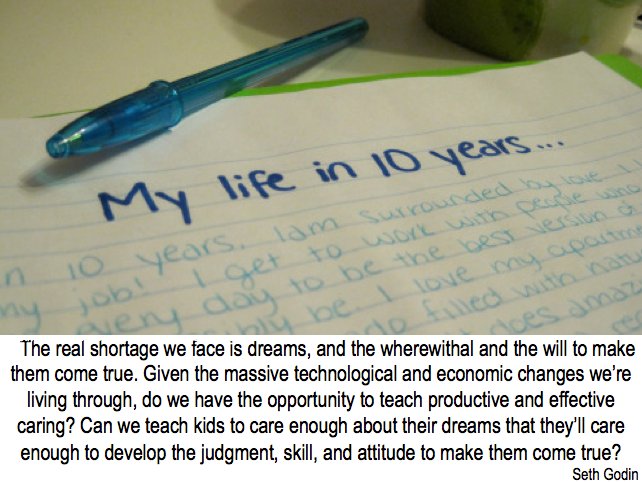 My life in 10 years...
10 years, I am surrounded by love. I
job! I get to work with people who
every day to be the best version
be. I love my
filled with
does
The real shortage we face is dreams, and the wherewithal and the will to make
them come true. Given the massive technological and economic changes we're
living through, do we have the opportunity to teach productive and effective
caring? Can we teach kids to care enough about their dreams that they'll care
enough to develop the judgment, skill, and attitude to make them come true?
Seth Godin